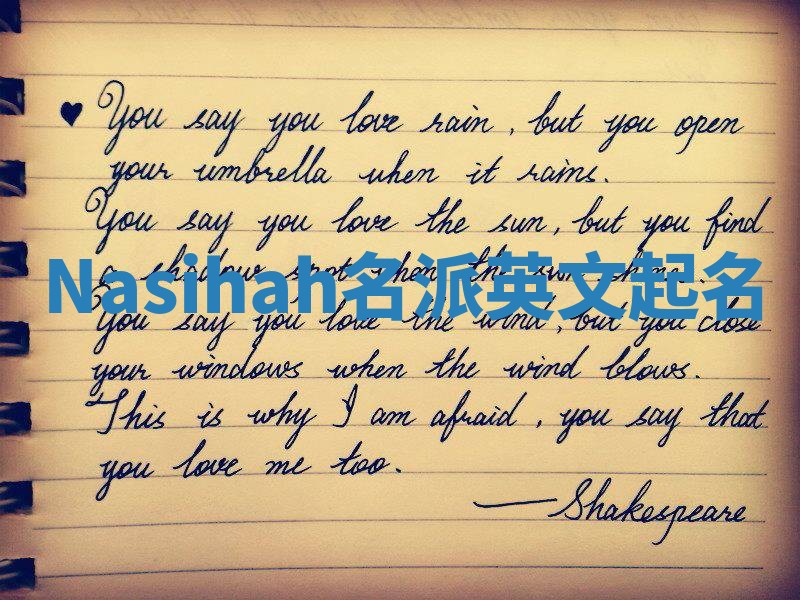 ♥ You say you love rain, but you open
your umbrella when it rains.
You say you love the sun, but you find
a shadow spot when the sun shine.
Nasihah名派英文起名
You say you love the wind, but you close
your windows when the wind blows.
This is why I am afraid, you say that
you love me too.
—Shakespeare